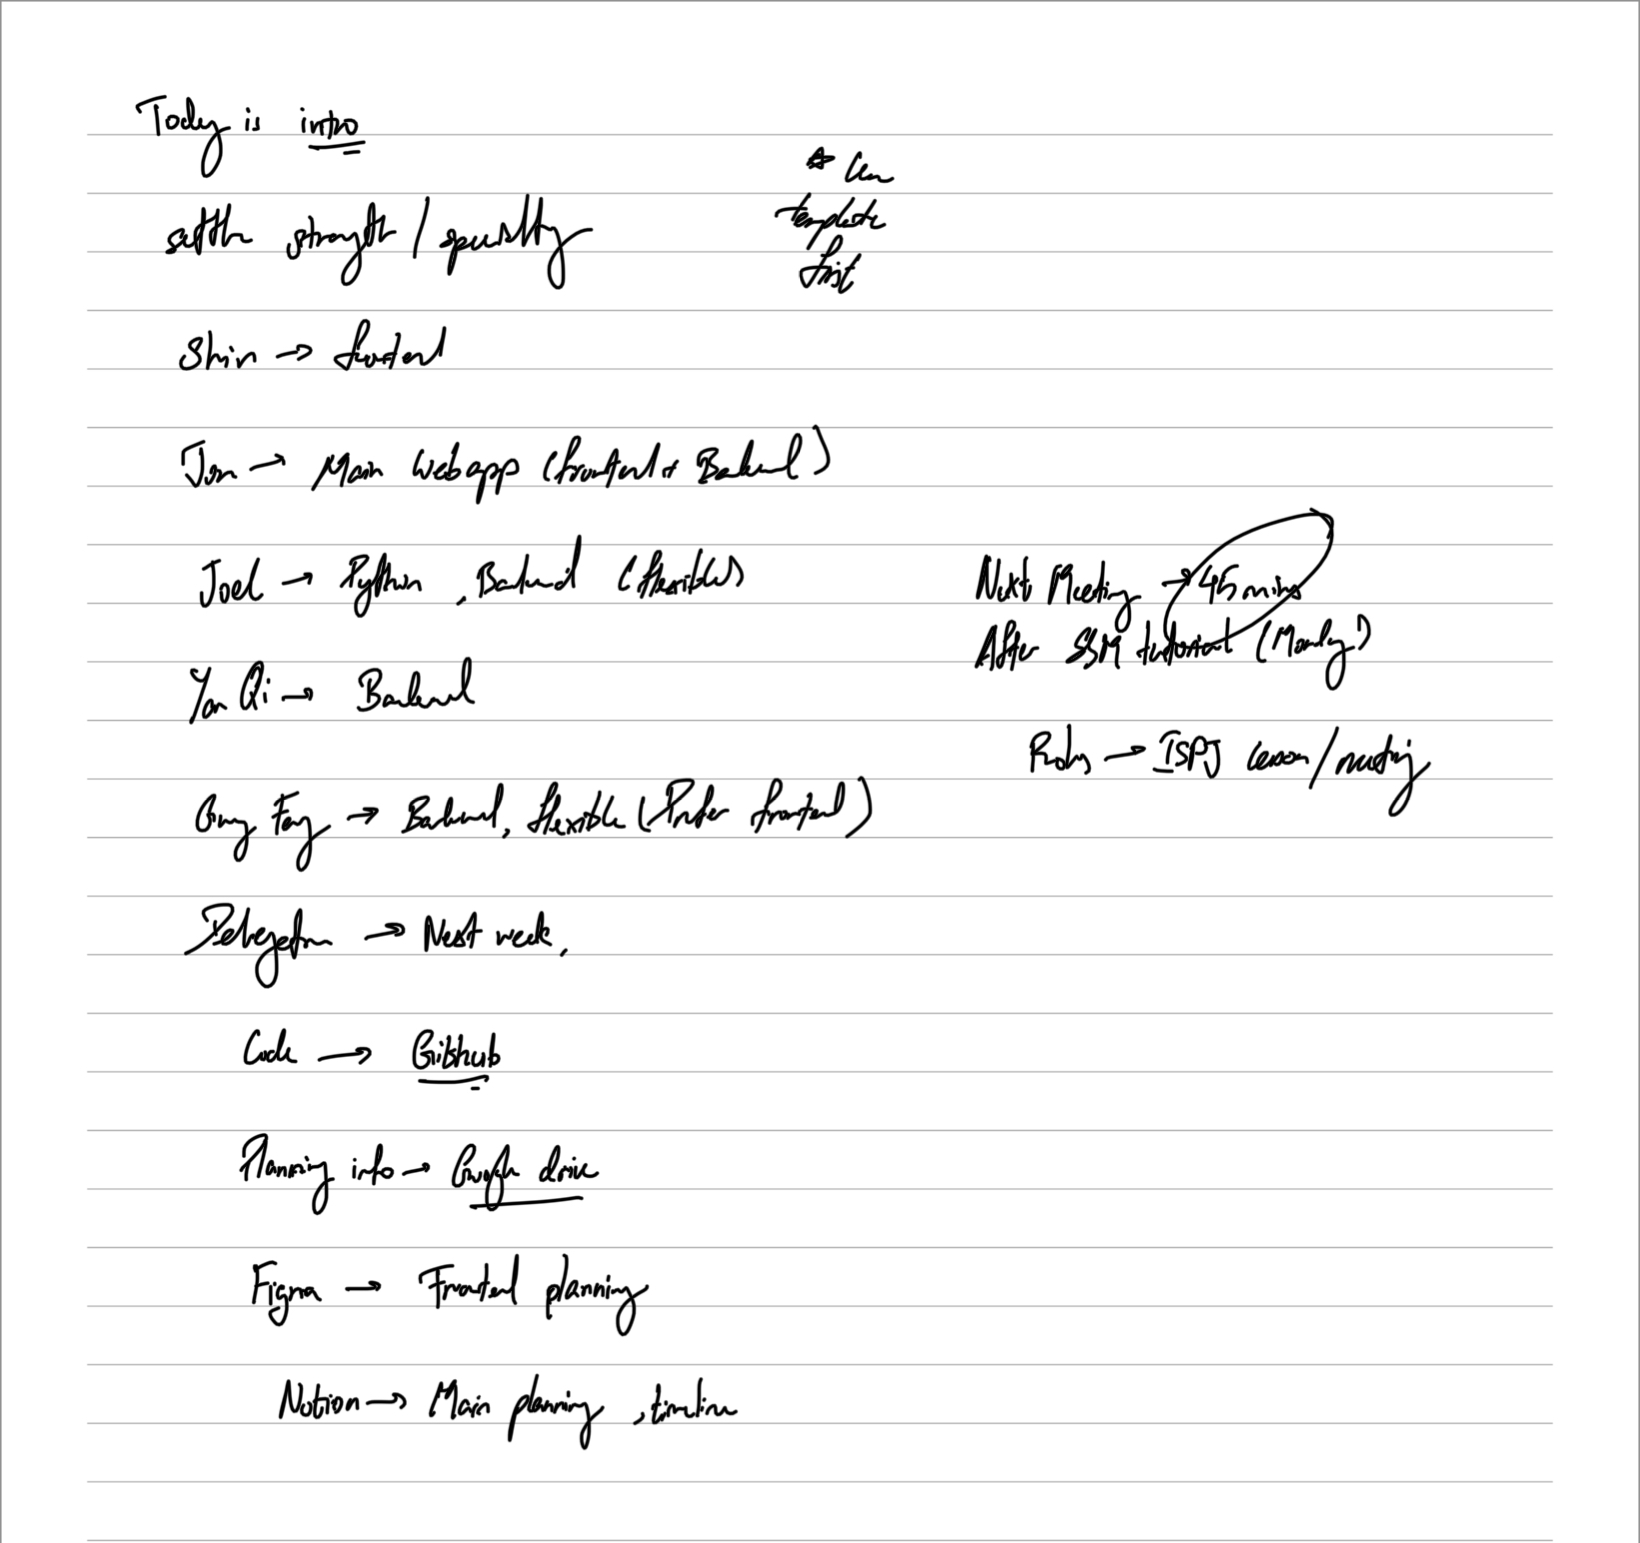 Today is intro
settle strength / specialty
* Use
template
first
Shin → frontend
Jon → Main Webapp (frontend + Backend)
Joel → Python, Backend (flexible)
Yan Qi → Backend
Feng → Backend, flexible (Prefer frontend)
Delegation → Next week,
Code → Github
Planning info → Google drive
Figma → Frontend planning
Notion → Main planning, timeline
Next Meeting → 45 mins
After SSM tutorial (Monday)
→ ISPJ lesson / meeting